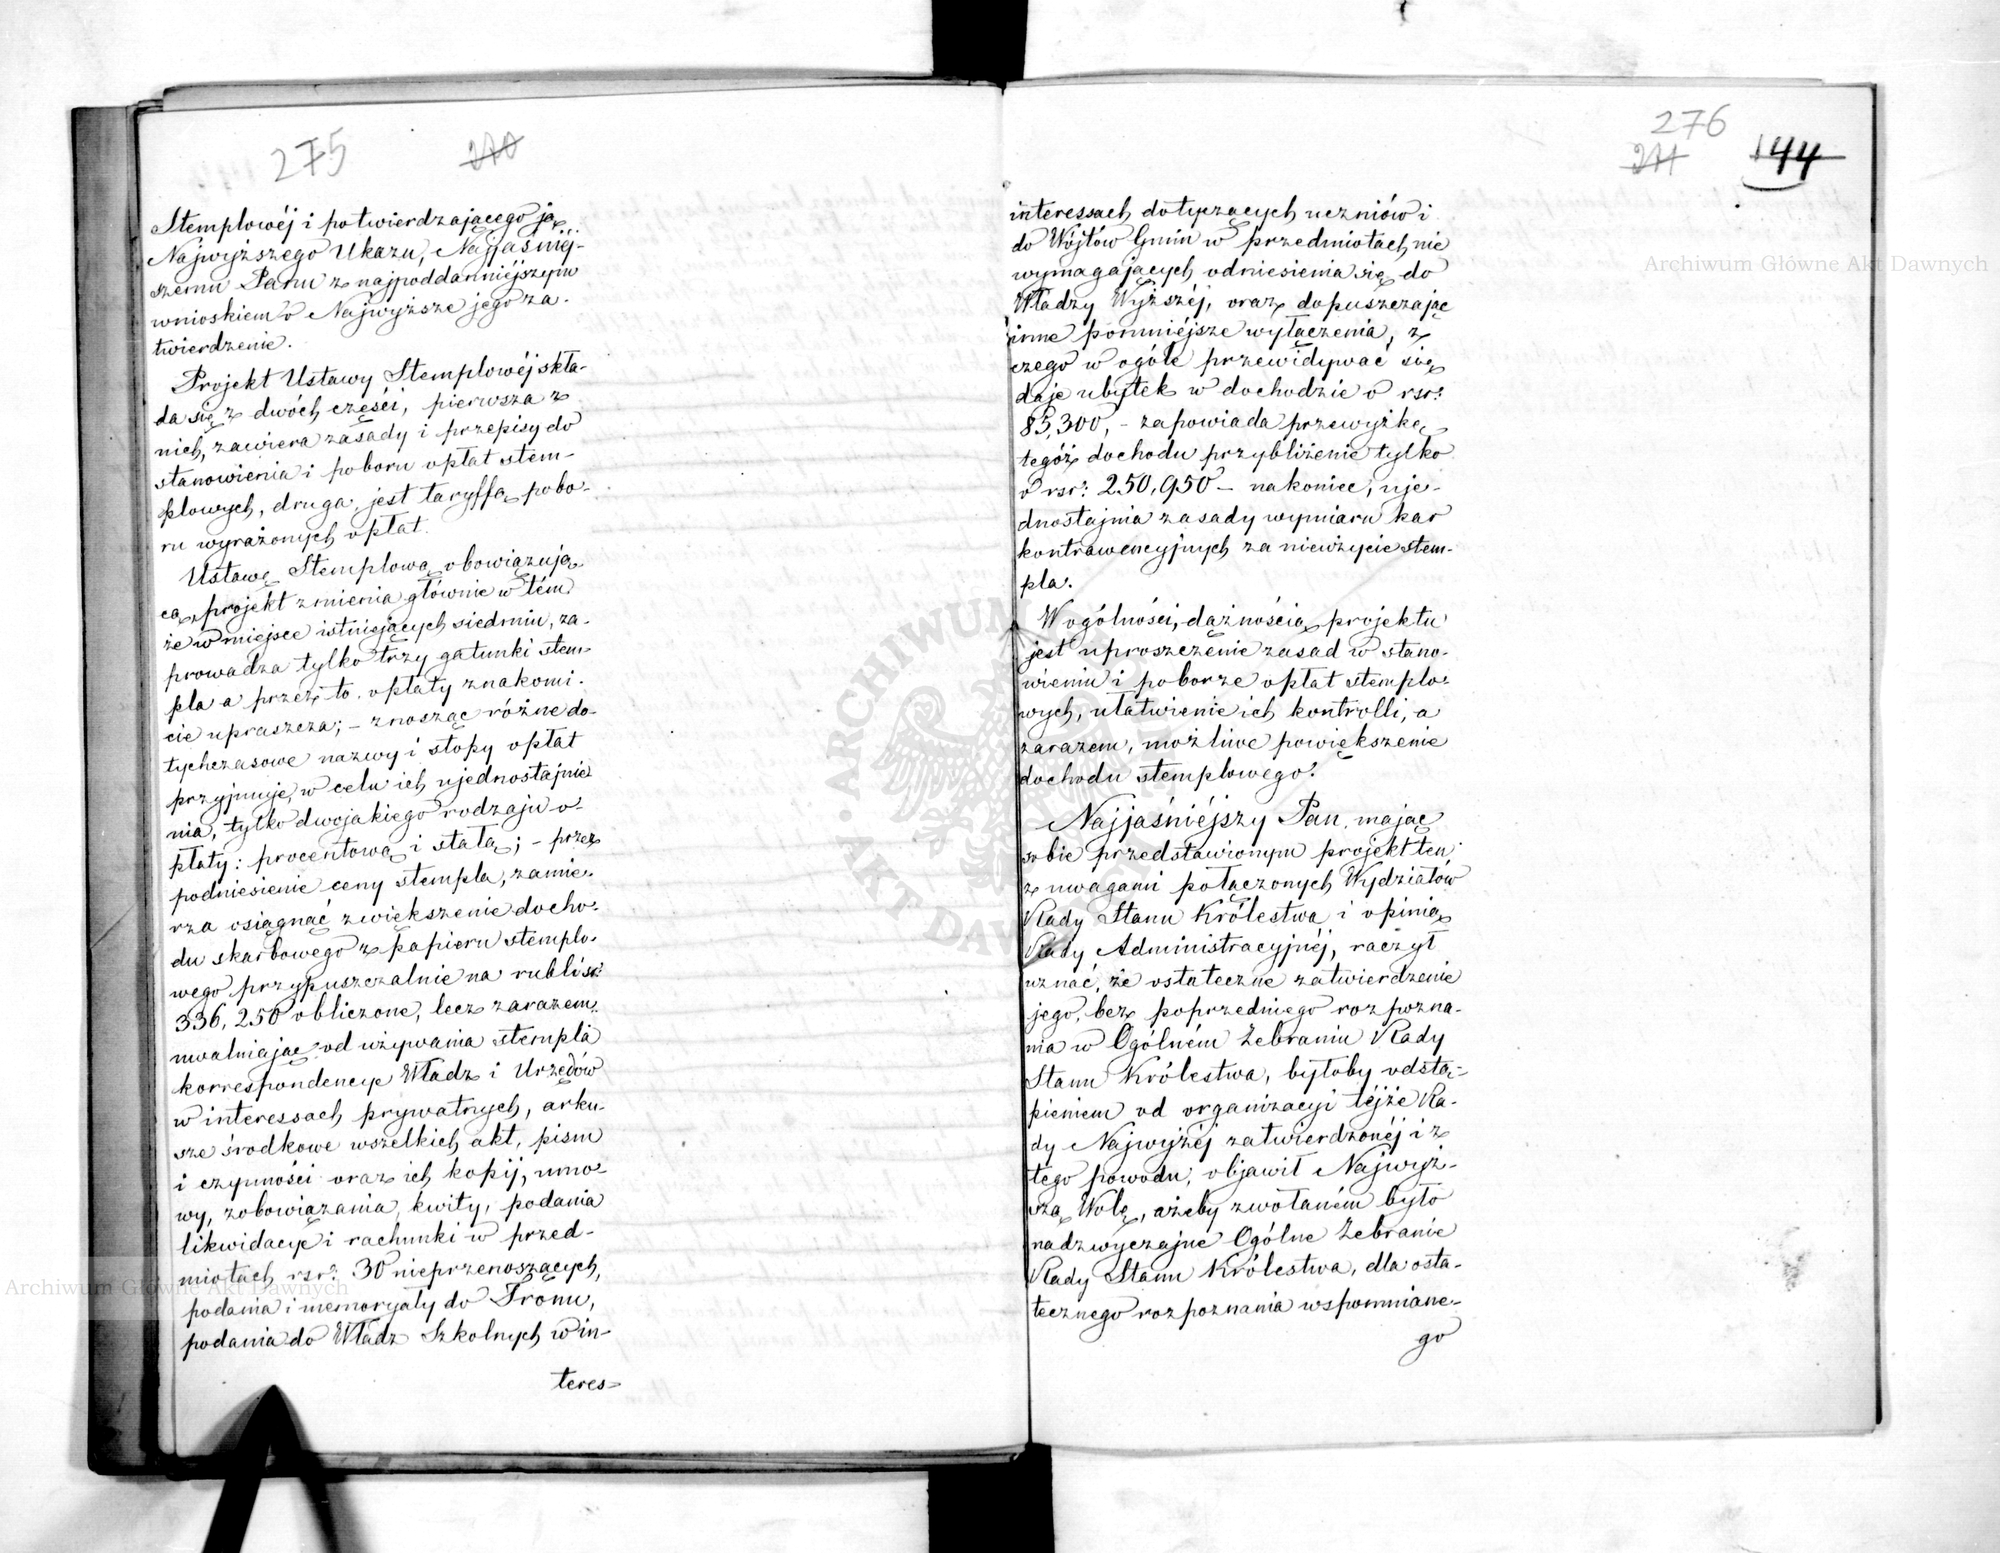 275
Stemplowéj i potwierdzającego ją
Najwyższego Ukazu, Najjaśniéj-
szemu Panu z najpoddanniéjszym
wnioskiem o Najwyższe jego za-
twierdzenie.
Projekt Ustawy Stemplowéj skła-
da się z dwóch części, pierwsza z
nich, zawiera zasady i przepisy do
stanowienia i poboru opłat stem-
plowych, druga, jest taryffą pobo-
ru wyrażonych opłat.
Ustawę Stemplową obowiązują-
cą, projekt zmienia głównie w tém
że w miejsce istniejących siedmiu, za-
prowadza tylko trzy gatunki stem-
pla a przez to opłaty znakomi-
cie upraszcza; - znosząc różne do-
tychczasowe nazwy i stopy opłat
przyjmuje, w celu ich ujednostajnie
nia, tylko dwojakiego rodzaju o-
płaty: procentową i stałą; - przez
podniesienie ceny stempla, zamie-
rza osiągnąć zwiększenie docho-
du skarbowego z papieru stemplo-
wego przypuszczalnie na rubli sr:
336,250 obliczone, lecz zarazem,
uwalniając od używania stempla
korrespondencye Władz i Urzędów
w interessach prywatnych, arku-
sze środkowe wszelkich akt, pism
i czynności oraz ich kopij, umo-
wy, zobowiązania, kwity, podania
likwidacye i rachunki w przed-
miotach rsr: 30 nieprzenoszących,
podania i memoryały do Tronu,
podania do Władz Szkolnych w in-
teres-
276
144
interessach dotyczących uczniów i
do Wójtów Gmin w przedmiotach nie
wymagających odniesienia się do
Władzy Wyższéj, oraz dopuszczając
inne pomniéjsze wyłączenia, z
czego w ogóle przewidywać się
daje ubytek w dochodzie o rsr:
85,300, - zapowiada przewyżkę
tegóż dochodu przybliżenie tylko
o rsr: 250,950 - nakoniec, uje-
dnostajnia zasady wymiaru kar
kontrawencyjnych za nieużycie stem-
pla.
W ogólności, dążnością projektu
jest uproszczenie zasad w stano-
wieniu i poborze opłat stemplo-
wych, ułatwienie ich kontrolli, a
zarazem, możliwe powiększenie
dochodu stemplowego.
Najjaśniéjszy Pan, mając
sobie przedstawionym projekt ten
z uwagami połączonych Wydziałów
Rady Stanu Królestwa i opinią
Rady Administracyjnéj, raczył
uznać, że ostateczne zatwierdzenie
jego, bez poprzedniego rozpozna-
nia w Ogólném Zebraniu Rady
Stanu Królestwa, byłoby odstą-
pieniem od organizacyi téjże Ra-
dy Najwyżéj zatwierdzonéj i z
tego powodu, objawił Najwyż-
szą Wolę, ażeby zwołaném było
nadzwyczajne Ogólne Zebranie
Rady Stanu Królestwa, dla osta-
tecznego rozpoznania wspomniane-
go
Archiwum Główne Akt Dawnych
Archiwum Główne Akt Dawnych
ARCHIWUM
AKT DAW